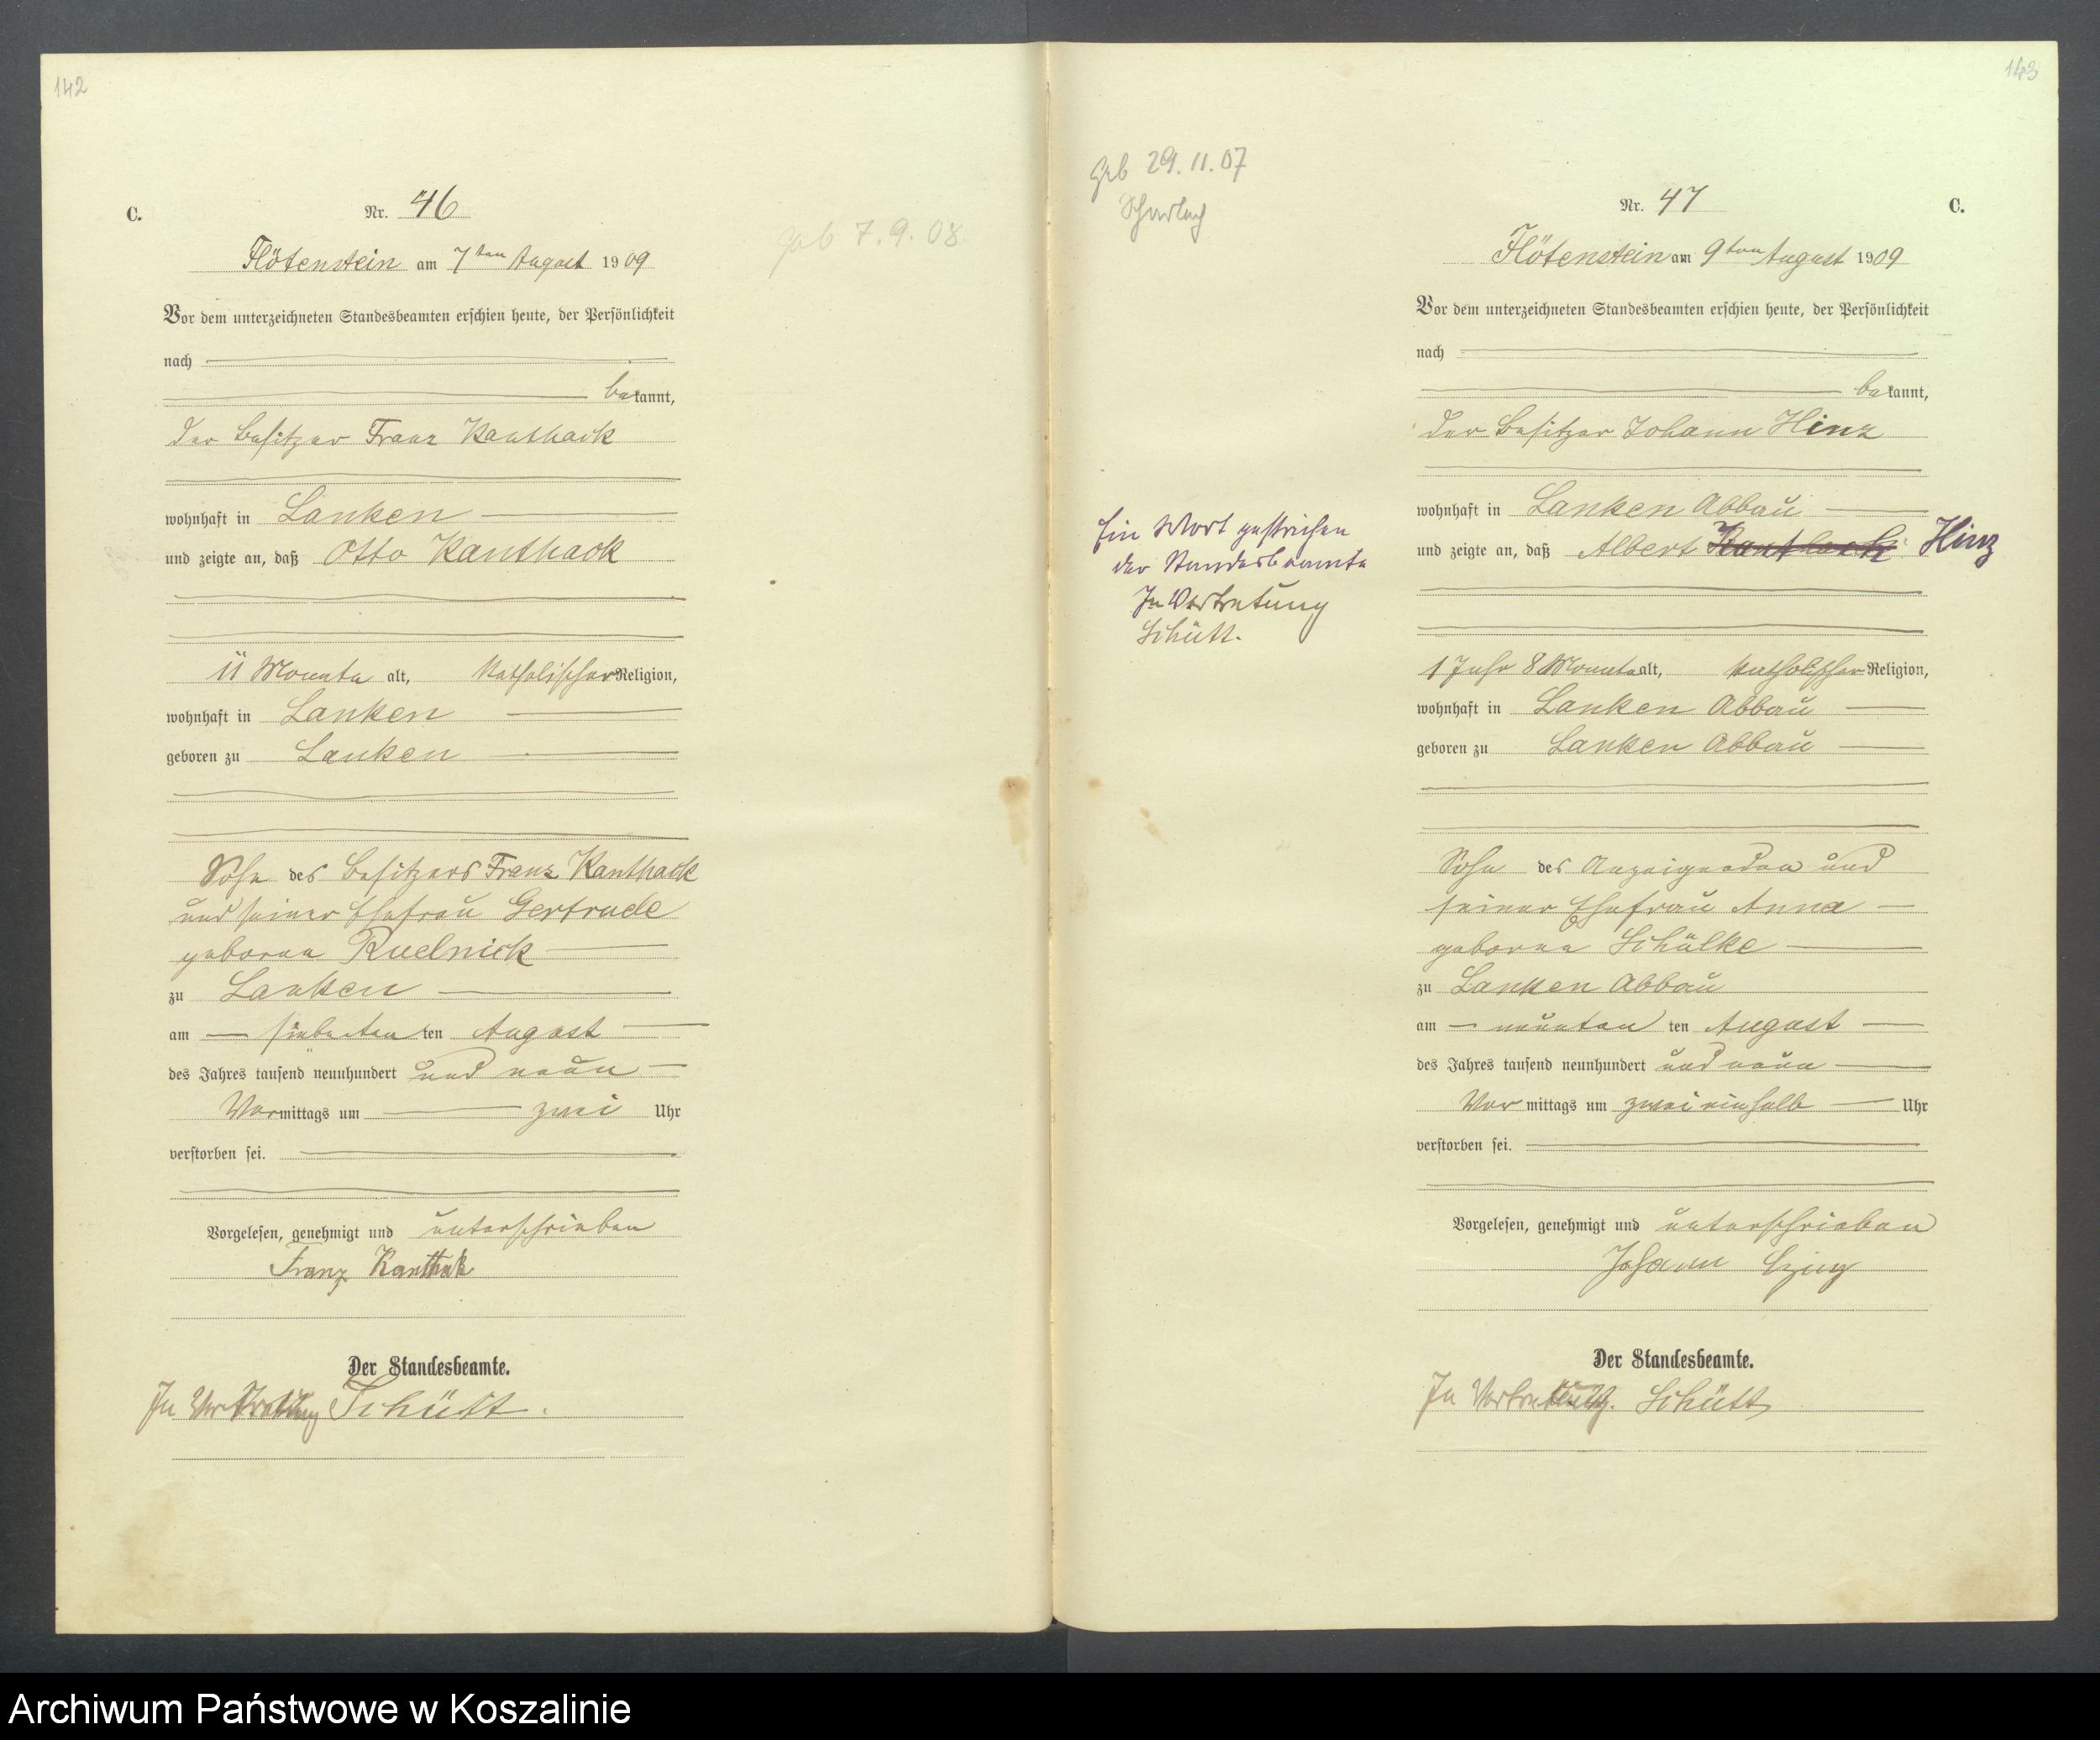 142
C.
Nr. 46
Flötenstein am 7ten August 1909
geb 7.9.08
Vor dem unterzeichneten Standesbeamten erschien heute, der Persönlichkeit
nach
bekannt,
der Besitzer Franz Kanthack
wohnhaft in Lanken
und zeigte an, daß Otto Kanthack
11 Monate alt, katholischer Religion,
wohnhaft in Lanken
geboren zu Lanken
Sohn des Besitzers Franz Kanthack
und seiner Ehefrau Gertrude
geborene Rudnick
zu Lanken
am siebenten ten August
des Jahres tausend neunhundert und neun
Vormittags um zwei Uhr
verstorben sei.
Vorgelesen, genehmigt und unterschrieben
Franz Kanthak
Der Standesbeamte.
In Vertretung Schütt.
143
Geb 29.11.07
Nr. 47
C.
Flötenstein am 9ten August 1909
Vor dem unterzeichneten Standesbeamten erschien heute, der Persönlichkeit
nach
bekannt,
der Besitzer Johann Hinz
wohnhaft in Lanken Abbau
und zeigte an, daß Albert Kanthack Hinz
Ein Wort gestrichen
der Standesbeamte
In Vertretung
Schütt.
1 Jahr 8 Monate alt, katholischer Religion,
wohnhaft in Lanken Abbau
geboren zu Lanken Abbau
Sohn des Anzeigenden und
seiner Ehefrau Anna
geborene Schülke
zu Lanken Abbau
am neunten ten August
des Jahres tausend neunhundert und neun
Vor mittags um zwei einhalb Uhr
verstorben sei.
Vorgelesen, genehmigt und unterschrieben
Johann
Der Standesbeamte.
In Vertretung. Schütt
Archiwum Państwowe w Koszalinie